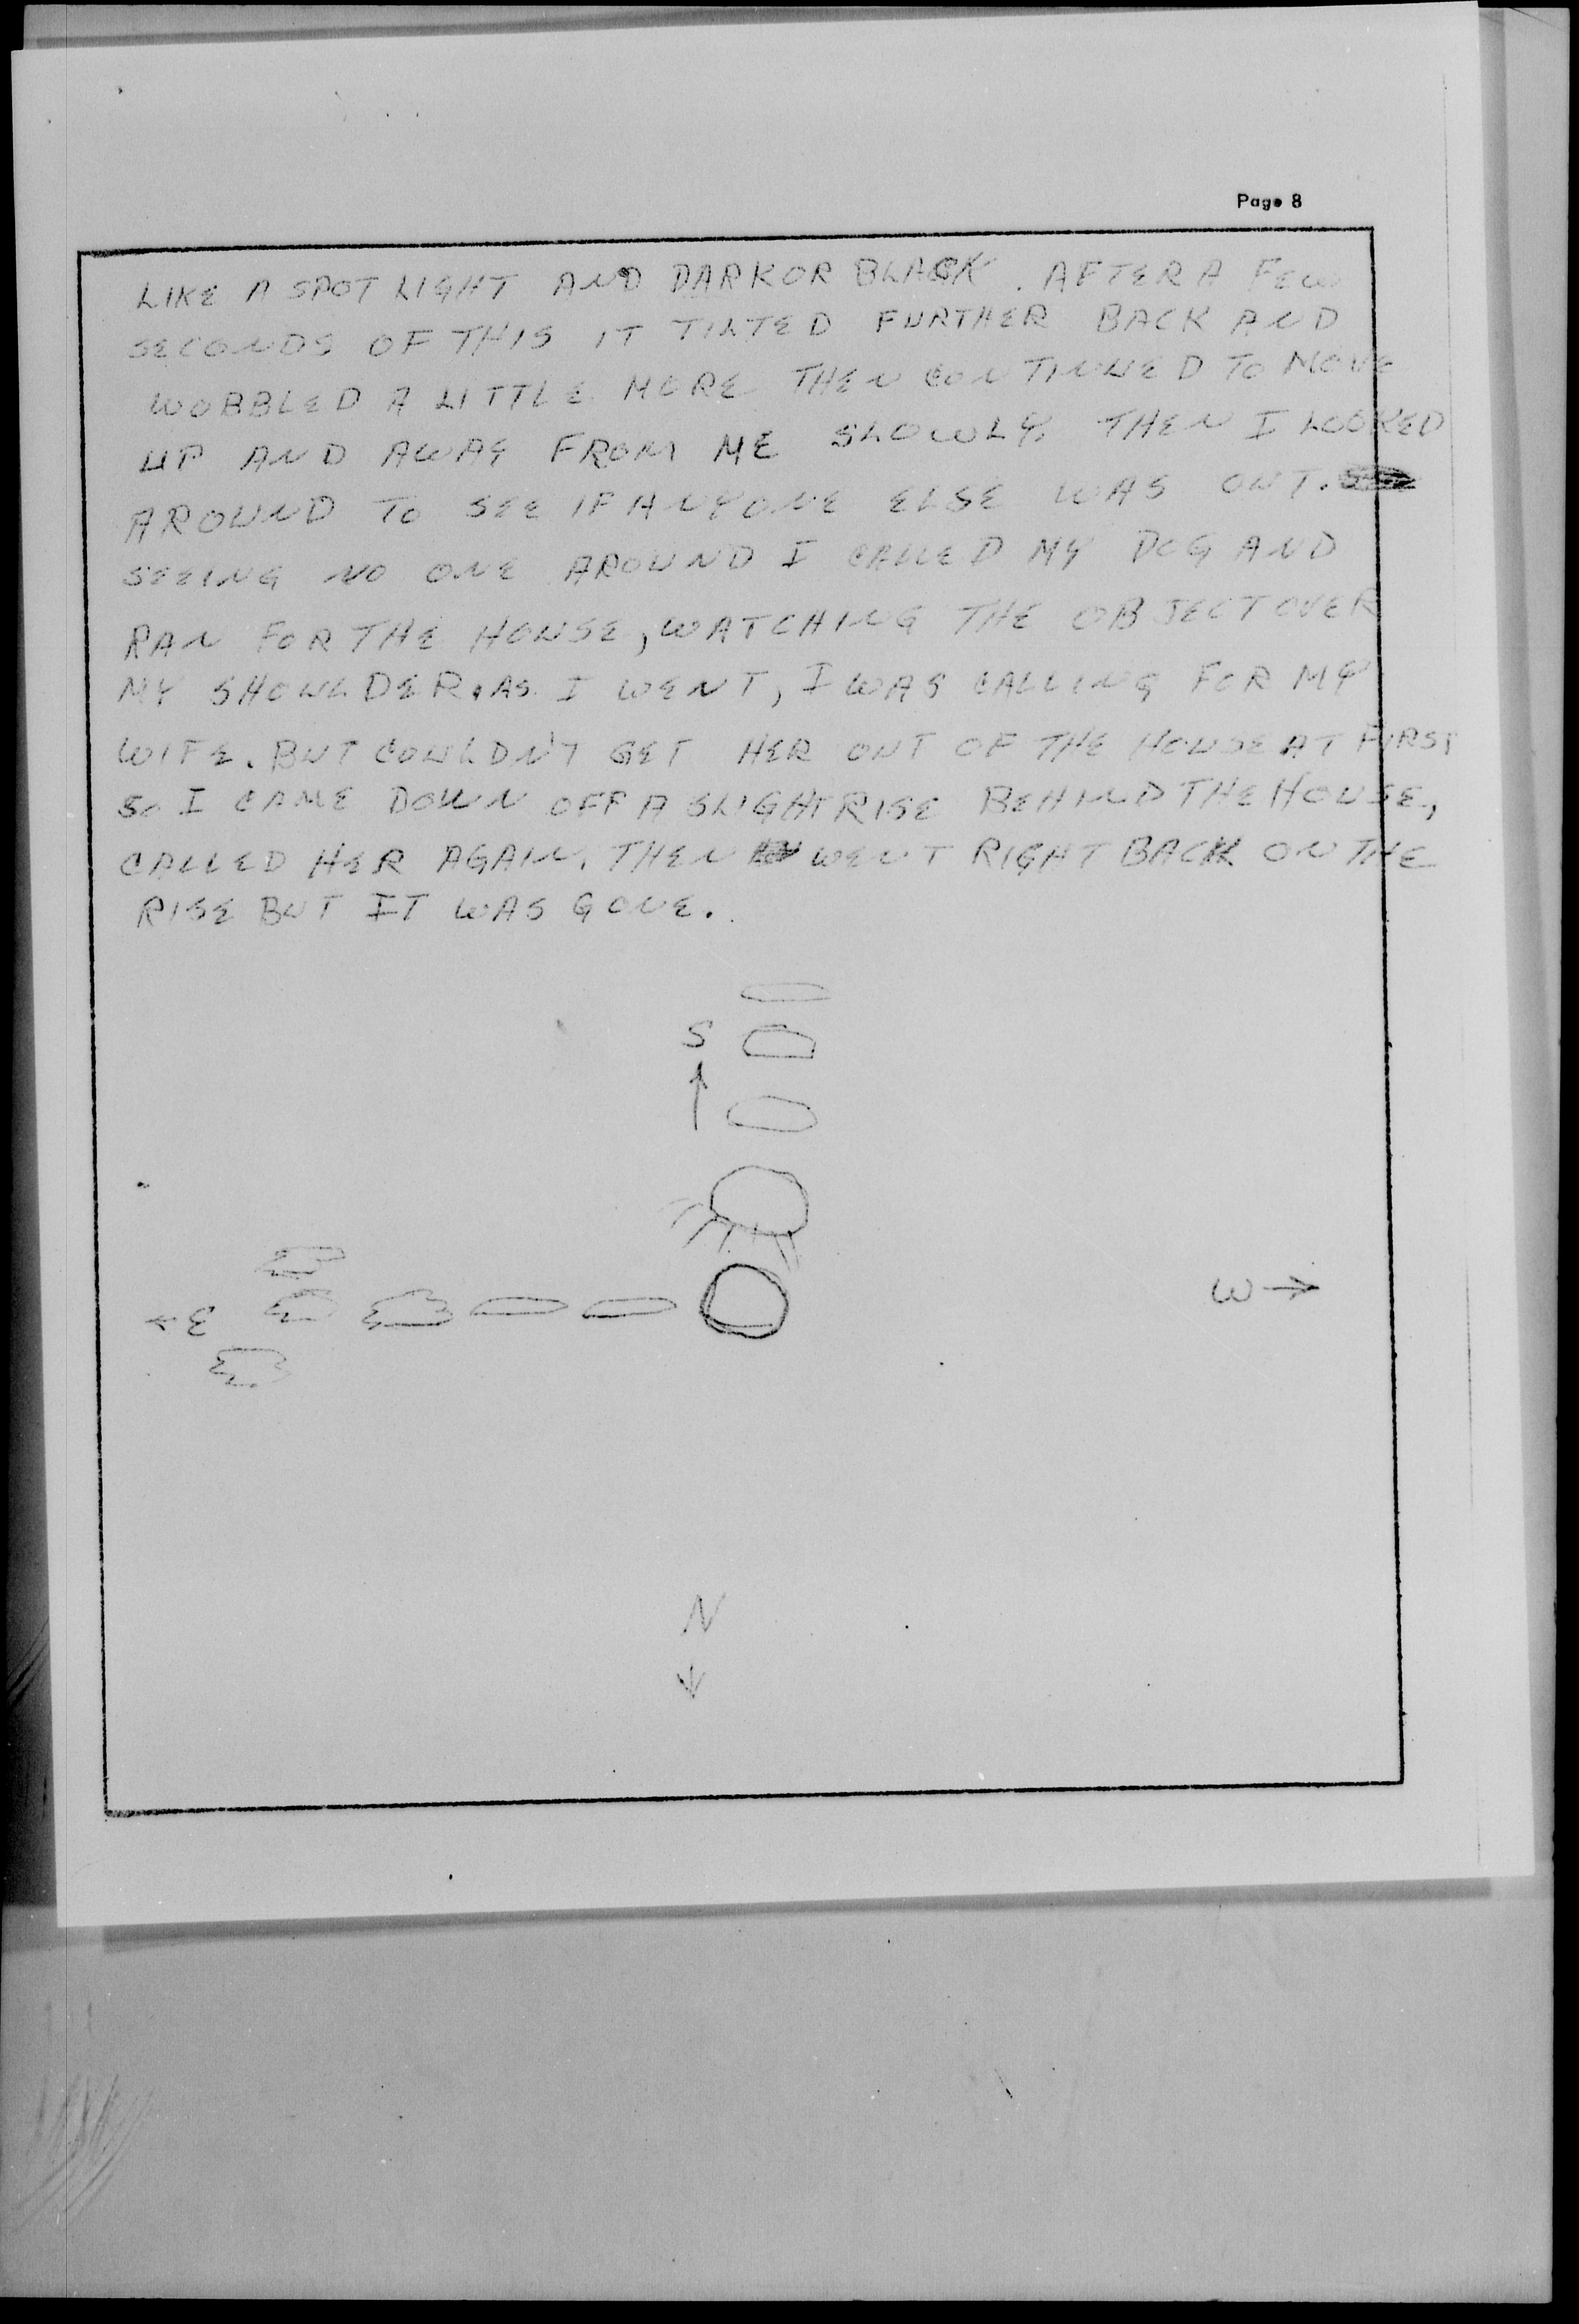 Page 8
LIKE A SPOT LIGHT AND DARK OR BLACK. AFTER A FEW
SECONDS OF THIS IT TILTED FURTHER BACK AND
WOBBLED A LITTLE MORE THEN CONTINUED TO MOVE
UP AND AWAY FROM ME SLOWLY. THEN I LOOKED
AROUND TO SEE IF ANYONE ELSE WAS OUT.
SEEING NO ONE AROUND I CALLED MY DOG AND
RAN FOR THE HOUSE, WATCHING THE OBJECT OVER
MY SHOULDER. AS I WENT, I WAS CALLING FOR MY
WIFE. BUT COULDN'T GET HER OUT OF THE HOUSE AT FIRST
SO I CAME DOWN OFF A SLIGHT RISE BEHIND THE HOUSE,
CALLED HER AGAIN. THEN WENT RIGHT BACK ON THE
RISE BUT IT WAS GONE.
S
↑
← E
W →
N
↓